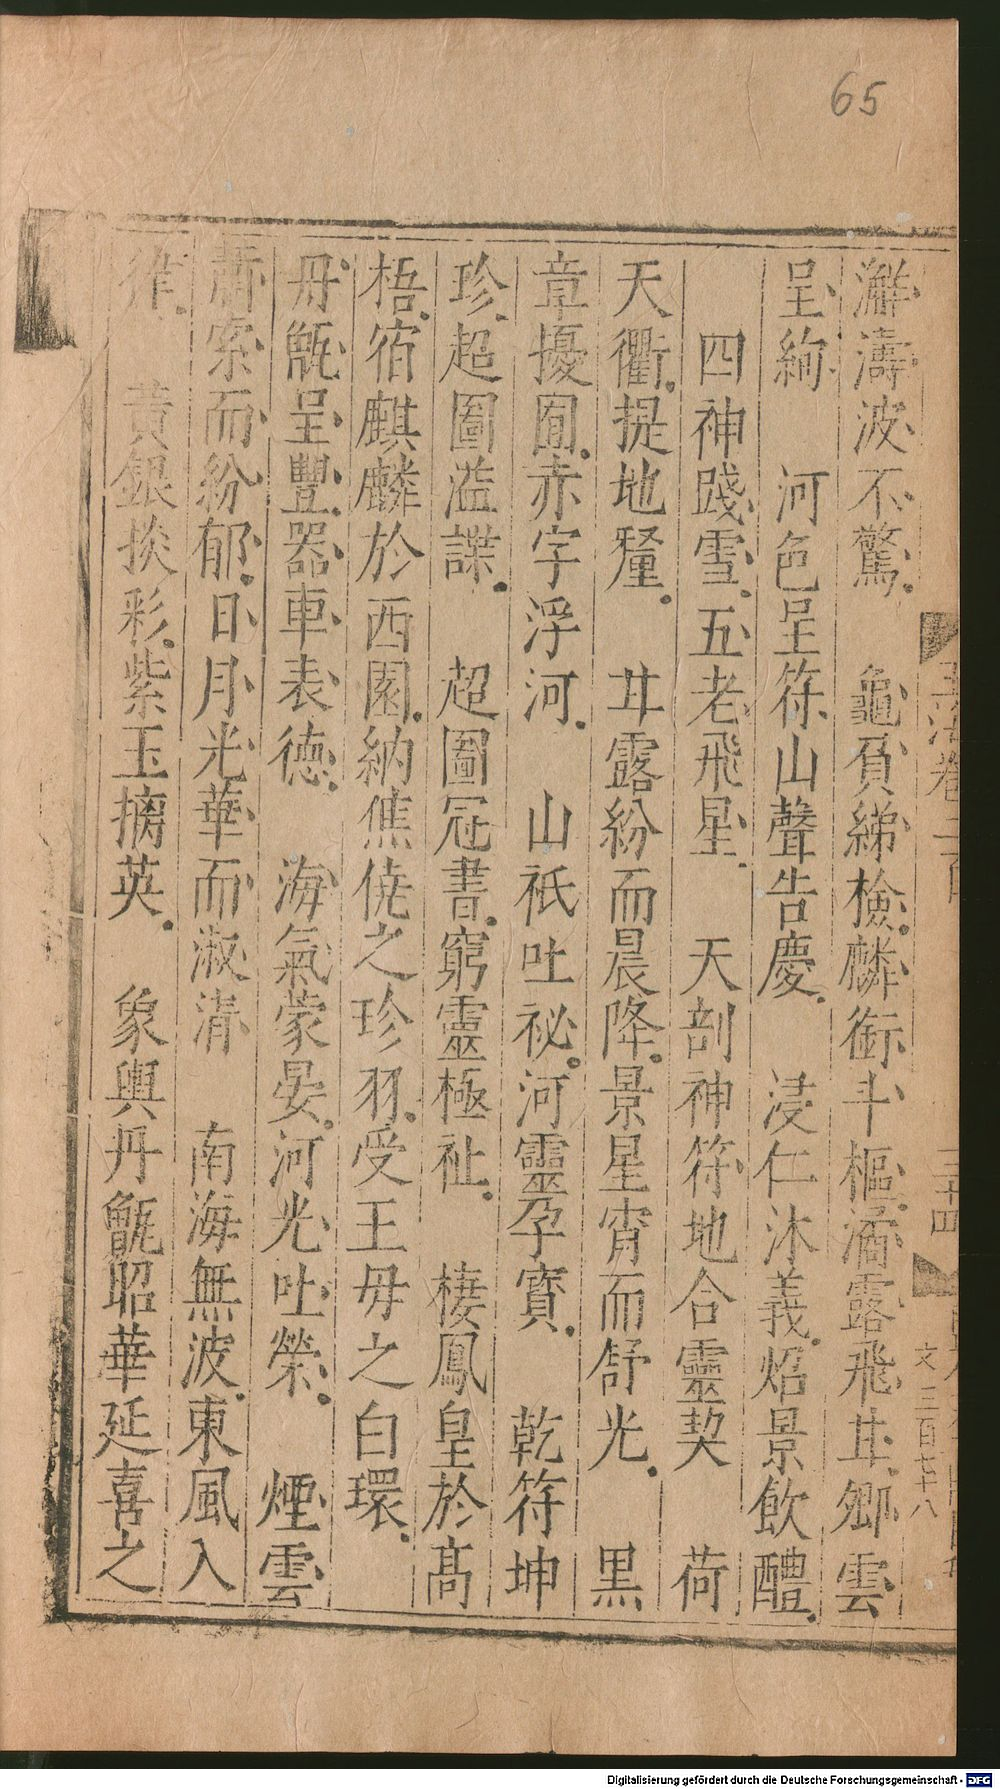 65
瀣濤波不驚龜負綈檢麟銜斗樞滴露飛甘鄉雲
呈絢 河色呈符山聲告慶 浸仁沐義炤景飲醴
四神踐雪五老飛星 天剖神符地合靈契 荷
天衢提地釐 甘露紛而晨降景星宵而舒光 黑
章擾囿赤字浮河 山祇吐祕河靈孕寶 乾符坤
珍超圖溢諜 超圖冠書窮靈極祉 棲鳳皇於髙
梧宿麒麟於西園納僬僥之珍羽受王母之白環
丹甑呈豐器車表德 海氣蒙晏河光吐榮 煙雲
蕭索而紛郁日月光華而淑清 南海無波東風入
律 黃銀掞彩紫玉摛英 象輿丹甑昭華延喜之
三十四
文三百七十八
Digitalisierung gefördert durch die Deutsche Forschungsgemeinschaft - DFG